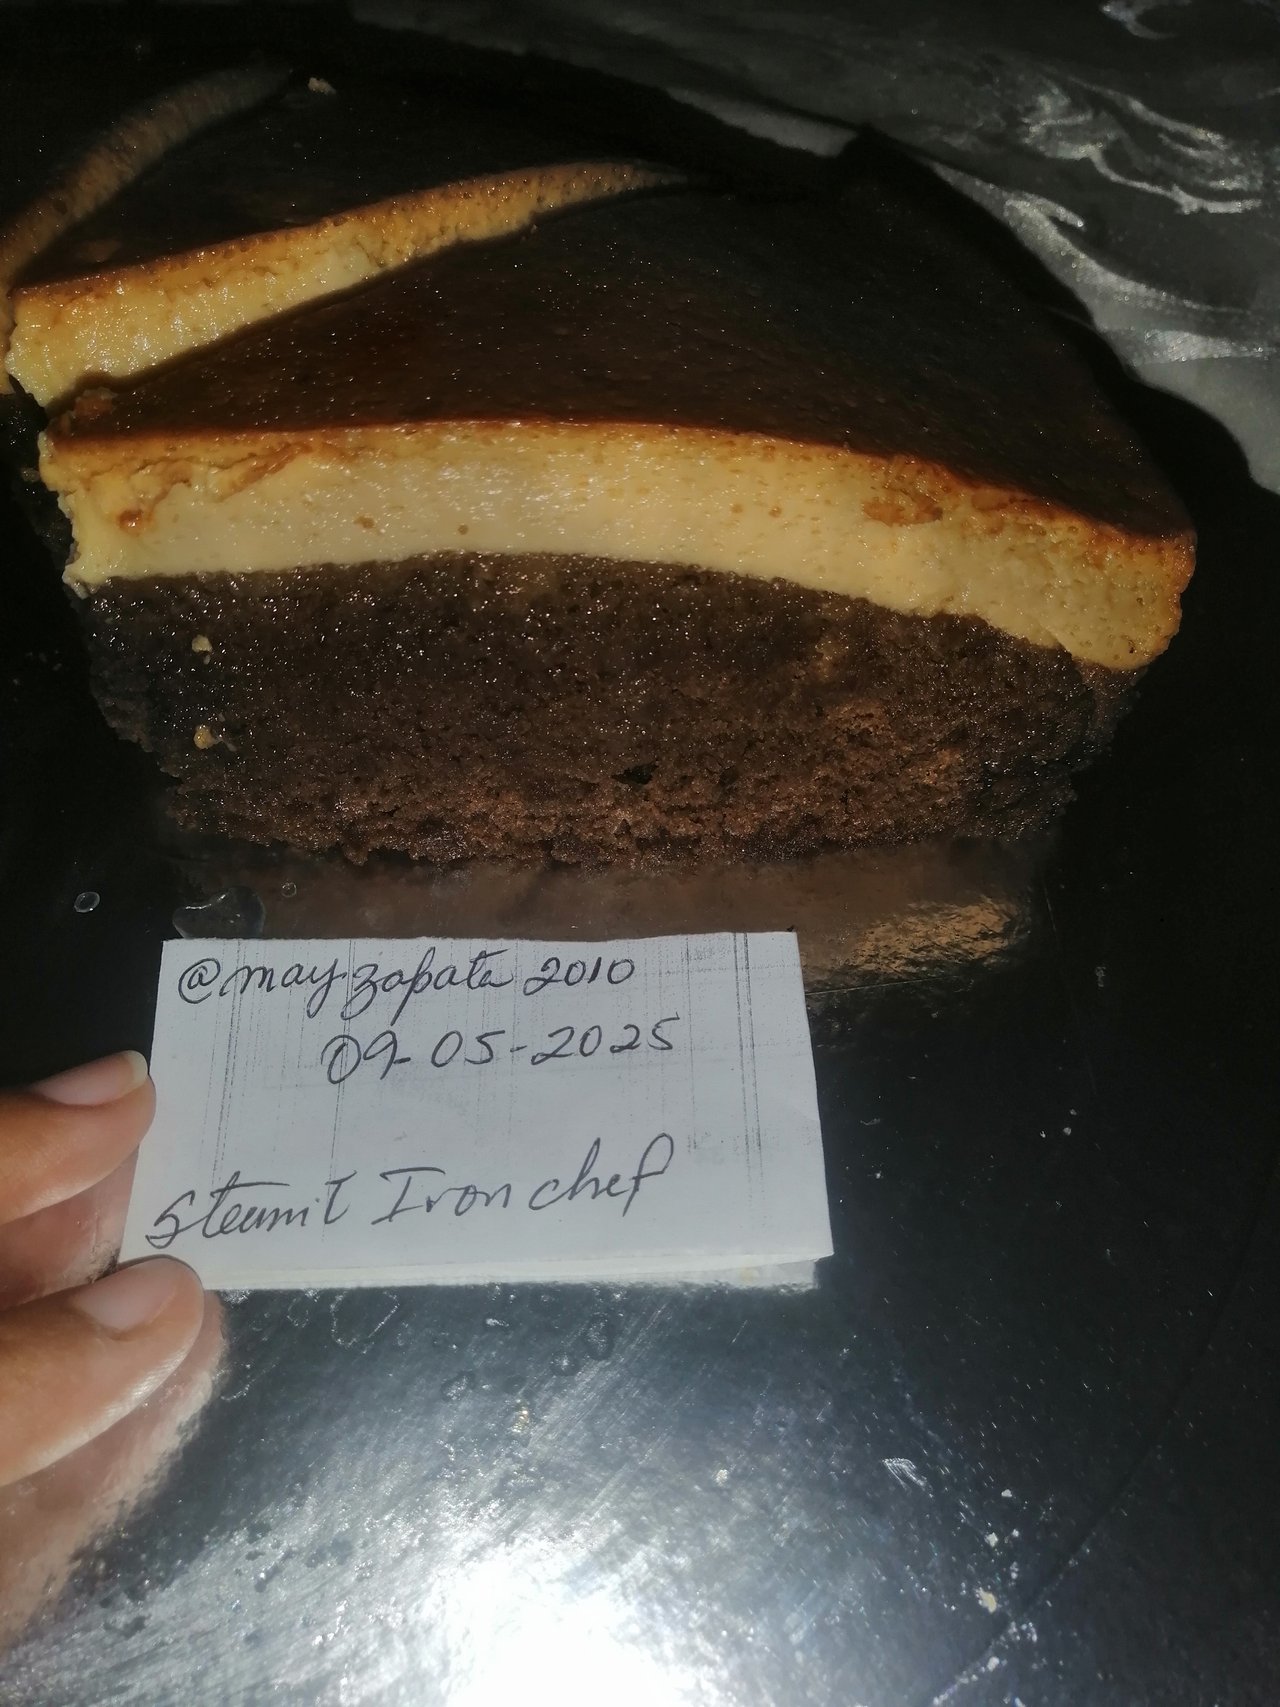 @mayzapata 2010
09-05-2025
Steemit Iron chef